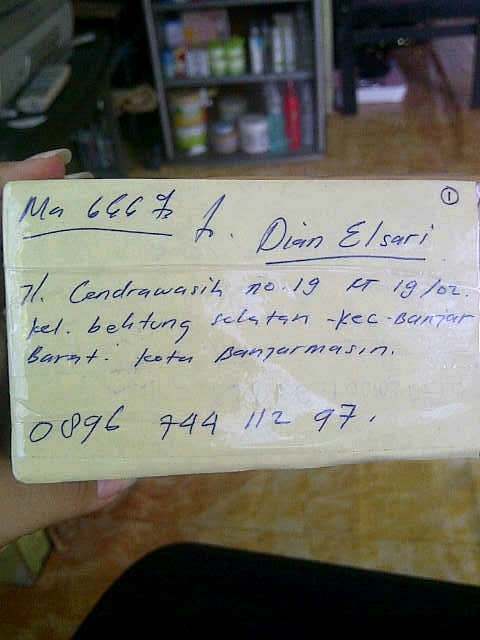 1
Dian Elsari
Jl. Cendrawasih no.19 RT 19/02.
kel. belitung selatan - kec - Banjar
Barat. kota Banjarmasin.
0896 744 112 97.